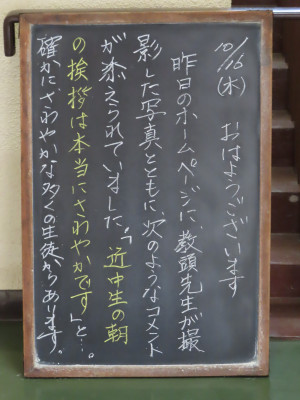 10/16(木) おはようございます
昨日のホームページに、教頭先生が撮
影した写真とともに、次のようなコメント
が添えられていました。「近中生の朝
の挨拶は本当にさわやかです」と…。
確かに、さわやかな多くの生徒からあります。